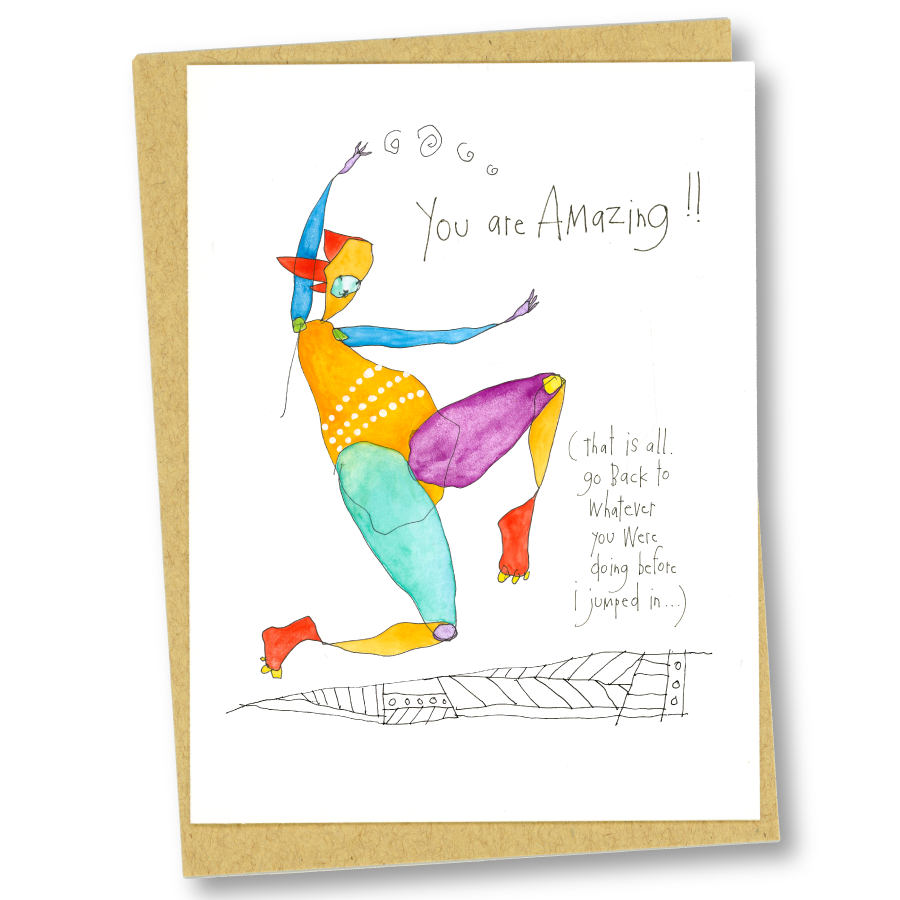 You are Amazing!!
(that is all.
go Back to
whatever
you were
doing before
i jumped in...)